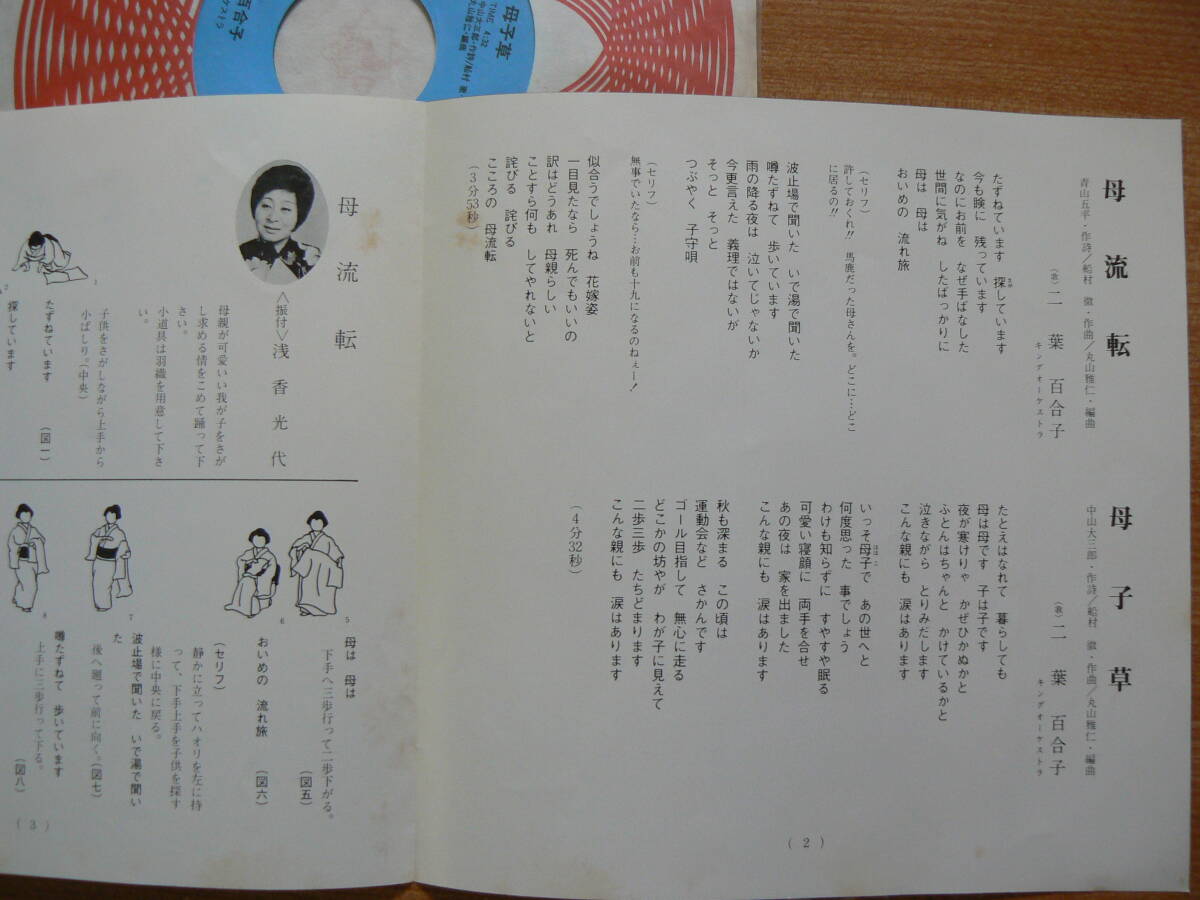 母子草
TIME 4:32
百合子
母流転
青山五平・作詩／船村 徹・作曲／丸山雅仁・編曲
（歌）二葉百合子
キングオーケストラ
たずねています 探しています
今も瞼に 残っています
なのにお前を なぜ手ばなした
世間に気がね したばっかりに
母は 母は
おいめの 流れ旅
（セリフ）
許しておくれ!! 馬鹿だった母さんを。どこに…どこ
に居るの!!
波止場で聞いた いで湯で聞いた
噂たずねて 歩いています
雨の降る夜は 泣いてじゃないか
今更言えた 義理ではないが
そっと そっと
つぶやく 子守唄
（セリフ）
無事でいたなら…お前も十九になるのねぇー！
似合うでしょうね 花嫁姿
一目見たなら 死んでもいいの
訳はどうあれ 母親らしい
ことすら何も してやれないと
詫びる 詫びる
こころの 母流転
（3分53秒）
母子草
中山大三郎・作詩／船村 徹・作曲／丸山雅仁・編曲
（歌）二葉百合子
キングオーケストラ
たとえはなれて 暮らしても
母は母です 子は子です
夜が寒けりゃ かぜひかぬかと
ふとんはちゃんと かけているかと
泣きながら とりみだします
こんな親にも 涙はあります
いっそ母子で あの世へと
何度思った 事でしょう
わけも知らずに すやすや眠る
可愛い寝顔に 両手を合せ
あの夜は 家を出ました
こんな親にも 涙はあります
秋も深まる この頃は
運動会など さかんです
ゴール目指して 無心に走る
どこかの坊やが わが子に見えて
二歩三歩 たちどまります
こんな親にも 涙はあります
（4分32秒）
（2）
母流転
＜振付＞浅香光代
母親が可愛いい我が子をさが
し求める情をこめて踊って下
さい。
小道具は羽織を用意して下さ
い。
子供をさがしながら上手から
小ばしり。（中央）
たずねています （図一）
探しています
1
2
5
6
7
8
母は 母は
下手へ三歩行って二歩下がる。
（図五）
おいめの 流れ旅 （図六）
（セリフ）
静かに立ってハオリを左に持
って、下手上手を子供を探す
様に中央に戻る。
波止場で聞いた いで湯で聞い
た
後へ廻って前に向く。（図七）
噂たずねて 歩いています
上手に三歩行って下る。
（図八）
（3）